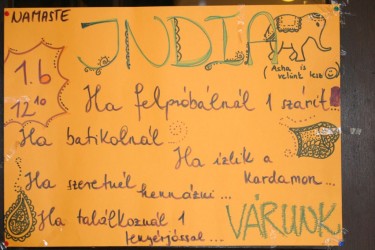 NAMASTE
INDIA
(Asha is velünk lesz ☺)
1.b
12¹⁰
Ha felpróbálnál 1 szárit...
Ha batikolnál...
Ha ízlik a kardamon...
Ha szeretnél hennázni...
Ha találkoznál 1 tengerjóssal...
VÁRUNK